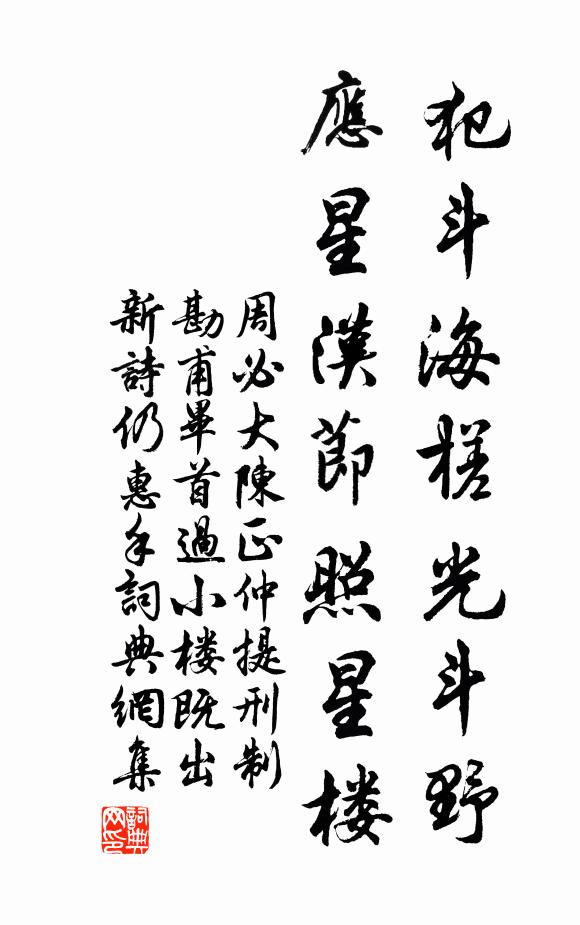 犯斗海槎光斗野
應星漢節照星楼
周必大陳正仲提刑制
勘甫畢首過小楼既出
新詩仍惠手詞典網集
詞典网印